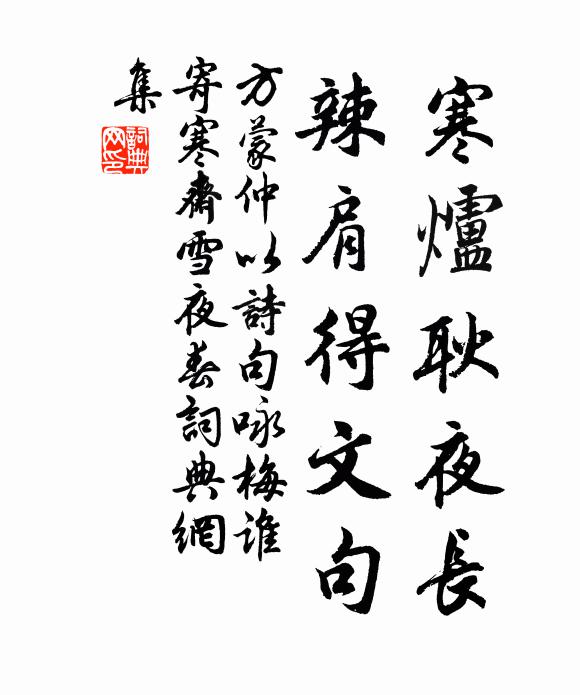 寒爐耿夜長
辣肩得文句
方蒙仲以詩句咏梅誰
寄寒齋雪夜春詞典網
集
詞典
网印